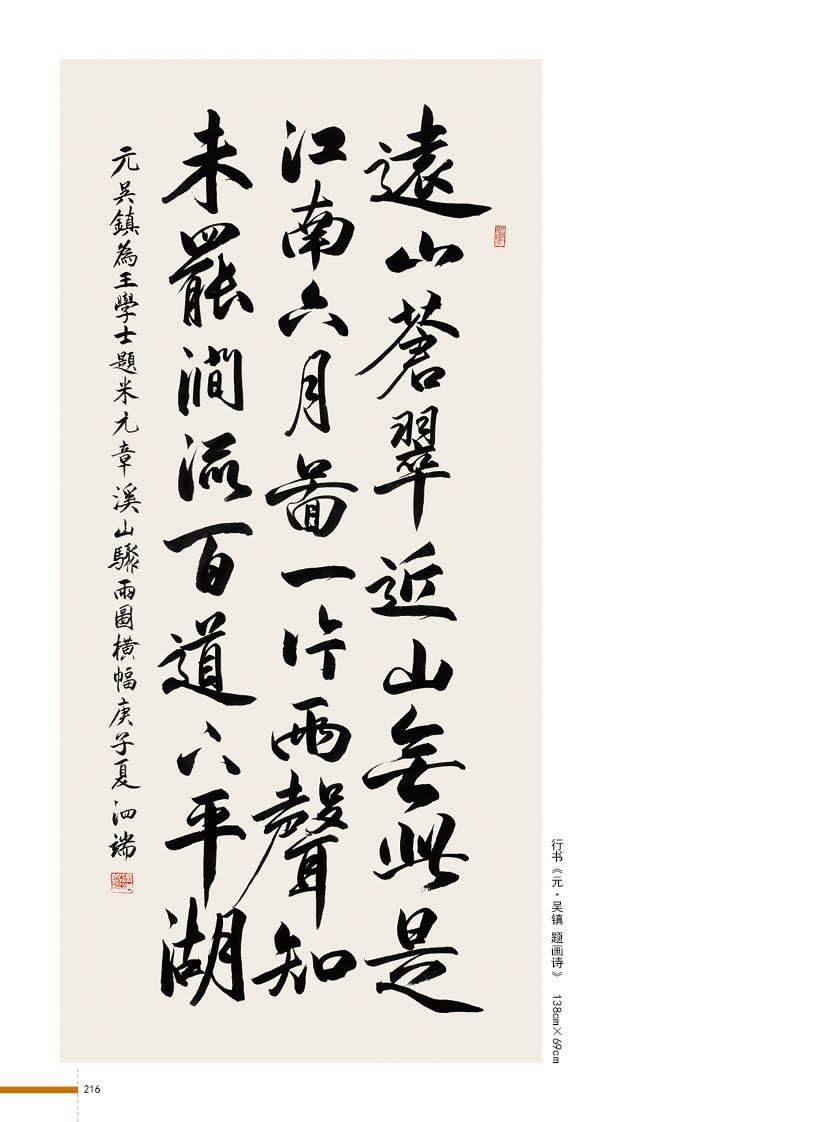 遠山蒼翠近山無此是
江南六月啚一片雨聲知
未罷澗流百道入平湖
元吳鎮為王學士題米元章溪山驟雨圖橫幅庚子夏泗端
行书《元·吴镇 题画诗》 138cm×69cm
216